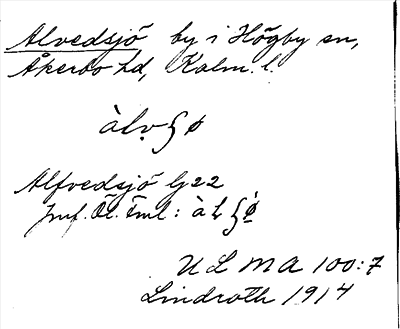 Alvedsjö by i Högby sn,
Åkerbo hd, Kalm. l.
Alfvedsjö Gj 22
Jmf. Öl. Fml:
ULMA 100:7
Lindroth 1914